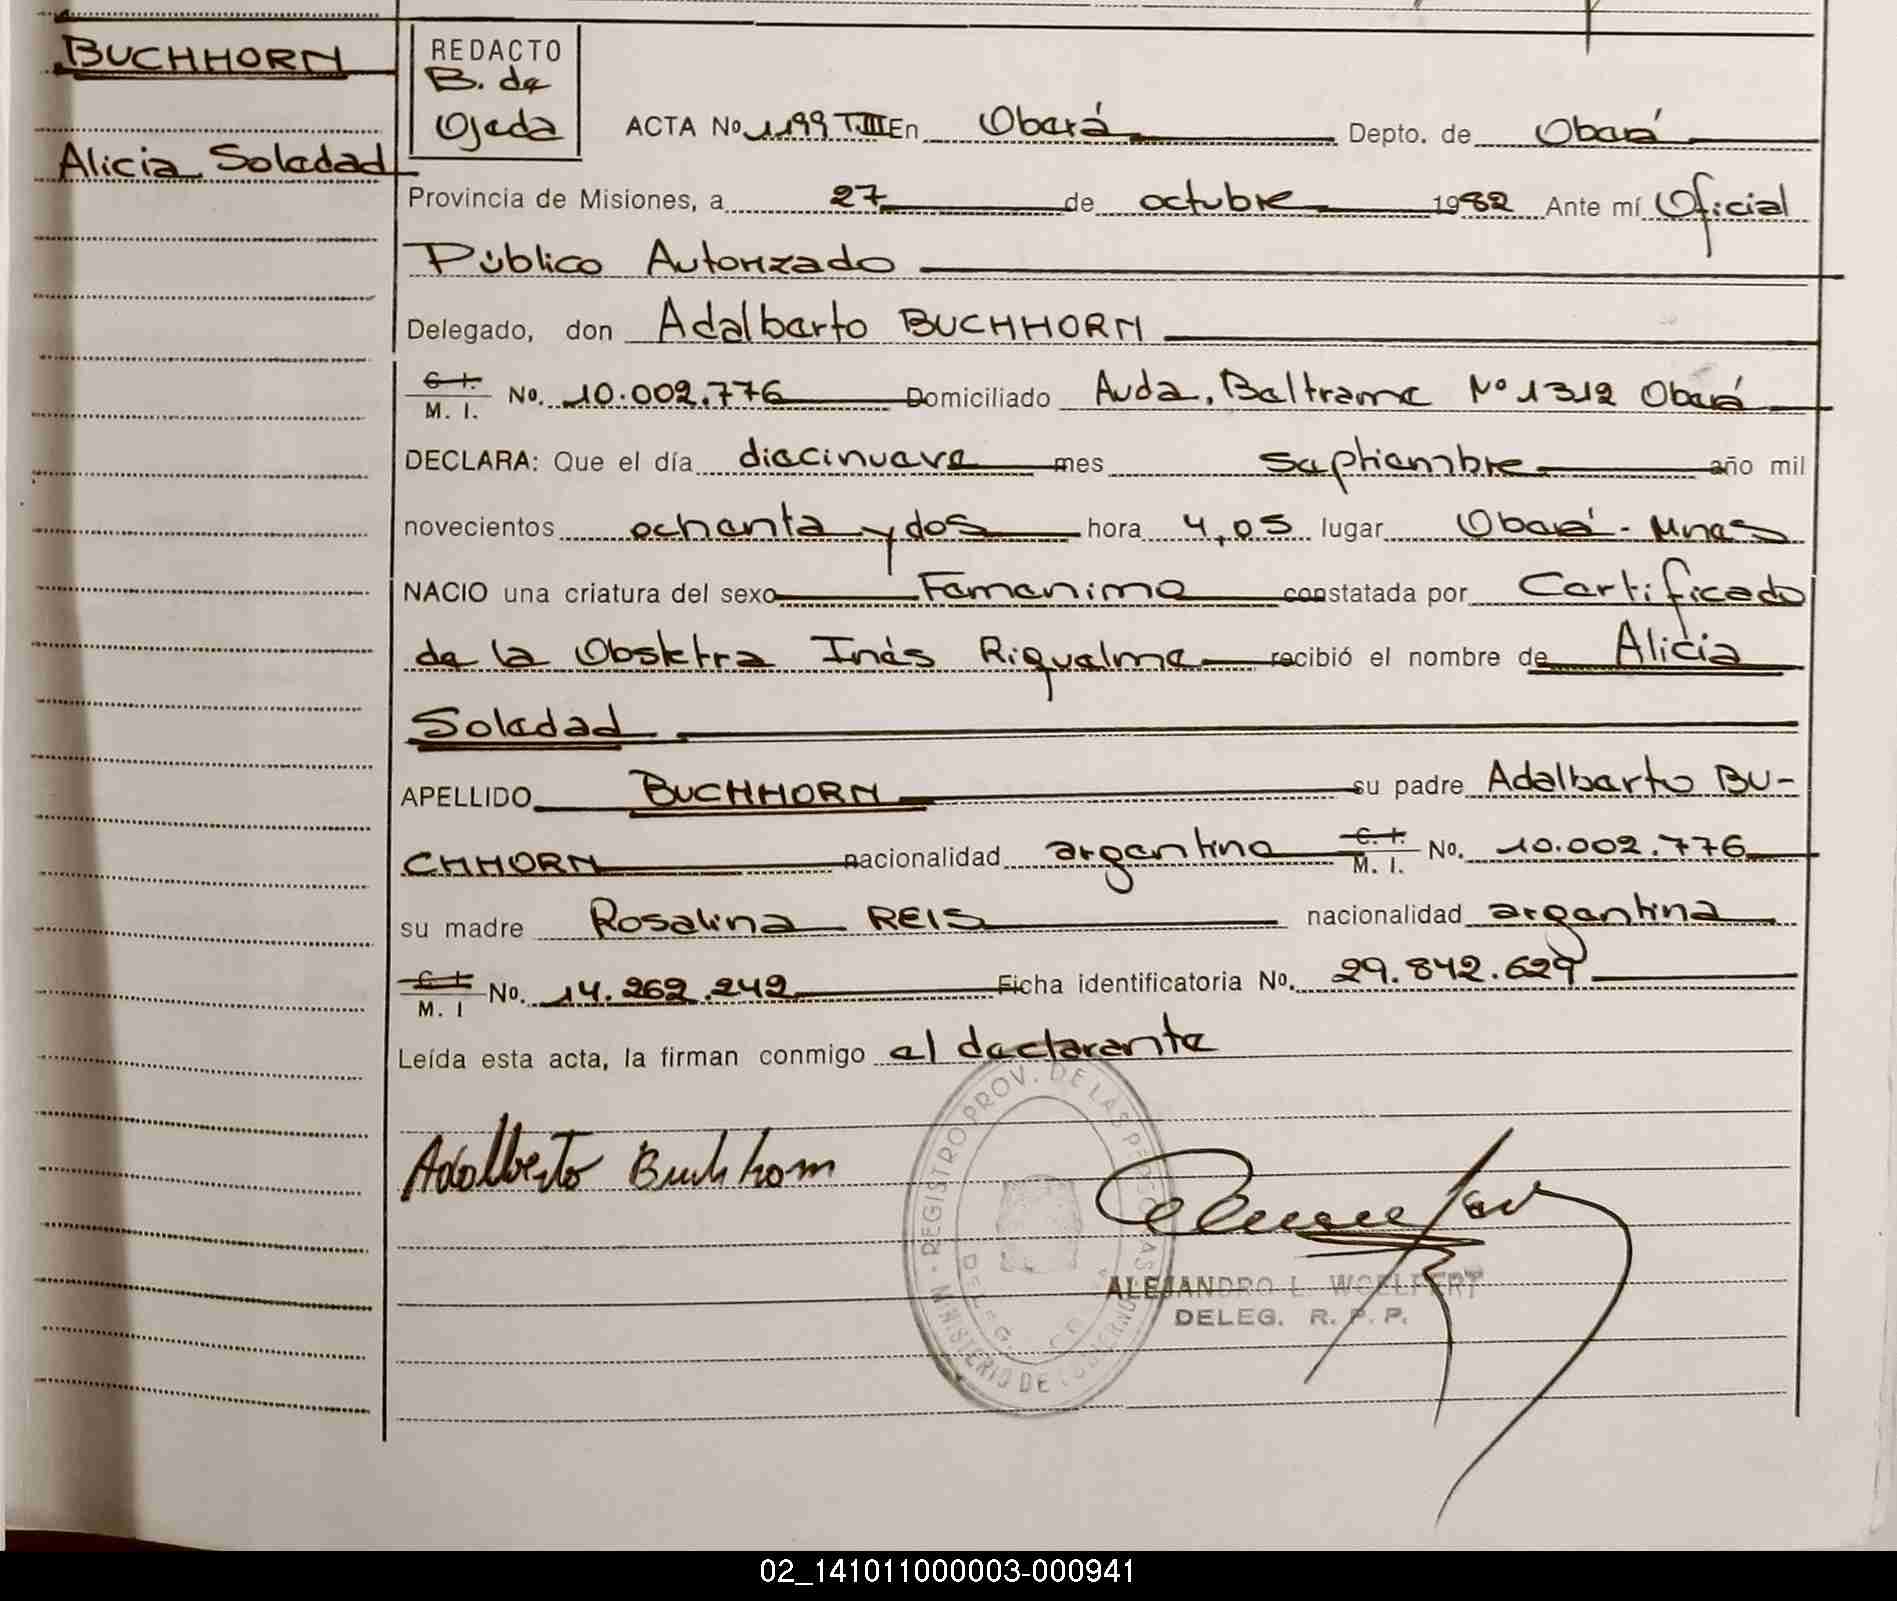 BUCHHORN
Alicia Soledad
REDACTO
B. de
Ojeda
ACTA No 1199 T.III En Oberá Depto. de Oberá
Provincia de Misiones, a 27 de octubre 1982 Ante mí Oficial
Público Autorizado
Delegado, don Adalberto BUCHHORN
C. I.
M. I. No. 10.002.776 Domiciliado Avda. Beltrame Nº 1312 Oberá
DECLARA: Que el día diecinueve mes septiembre año mil
novecientos ochenta y dos hora 4,05 lugar Oberá - Mnes
NACIO una criatura del sexo Femenimo constatada por Certificado
de la Obstetra Inés Riquelme recibió el nombre de Alicia
Soledad
APELLIDO BUCHHORN su padre Adalberto BU-
CHHORN nacionalidad argentino C. I. M. I. No. 10.002.776
su madre Rosalina REIS nacionalidad argentina
C. I. M. I No. 14.262.242 Ficha identificatoria No. 29.842.629
Leída esta acta, la firman conmigo el declarante
REGISTRO PROV. DE LAS PERSONAS
MINISTERIO DE GOBIERNO
DELEG.
Adalberto Buchhorn
ALEJANDRO L. WOELFERT
DELEG. R. P. P.
02_141011000003-000941